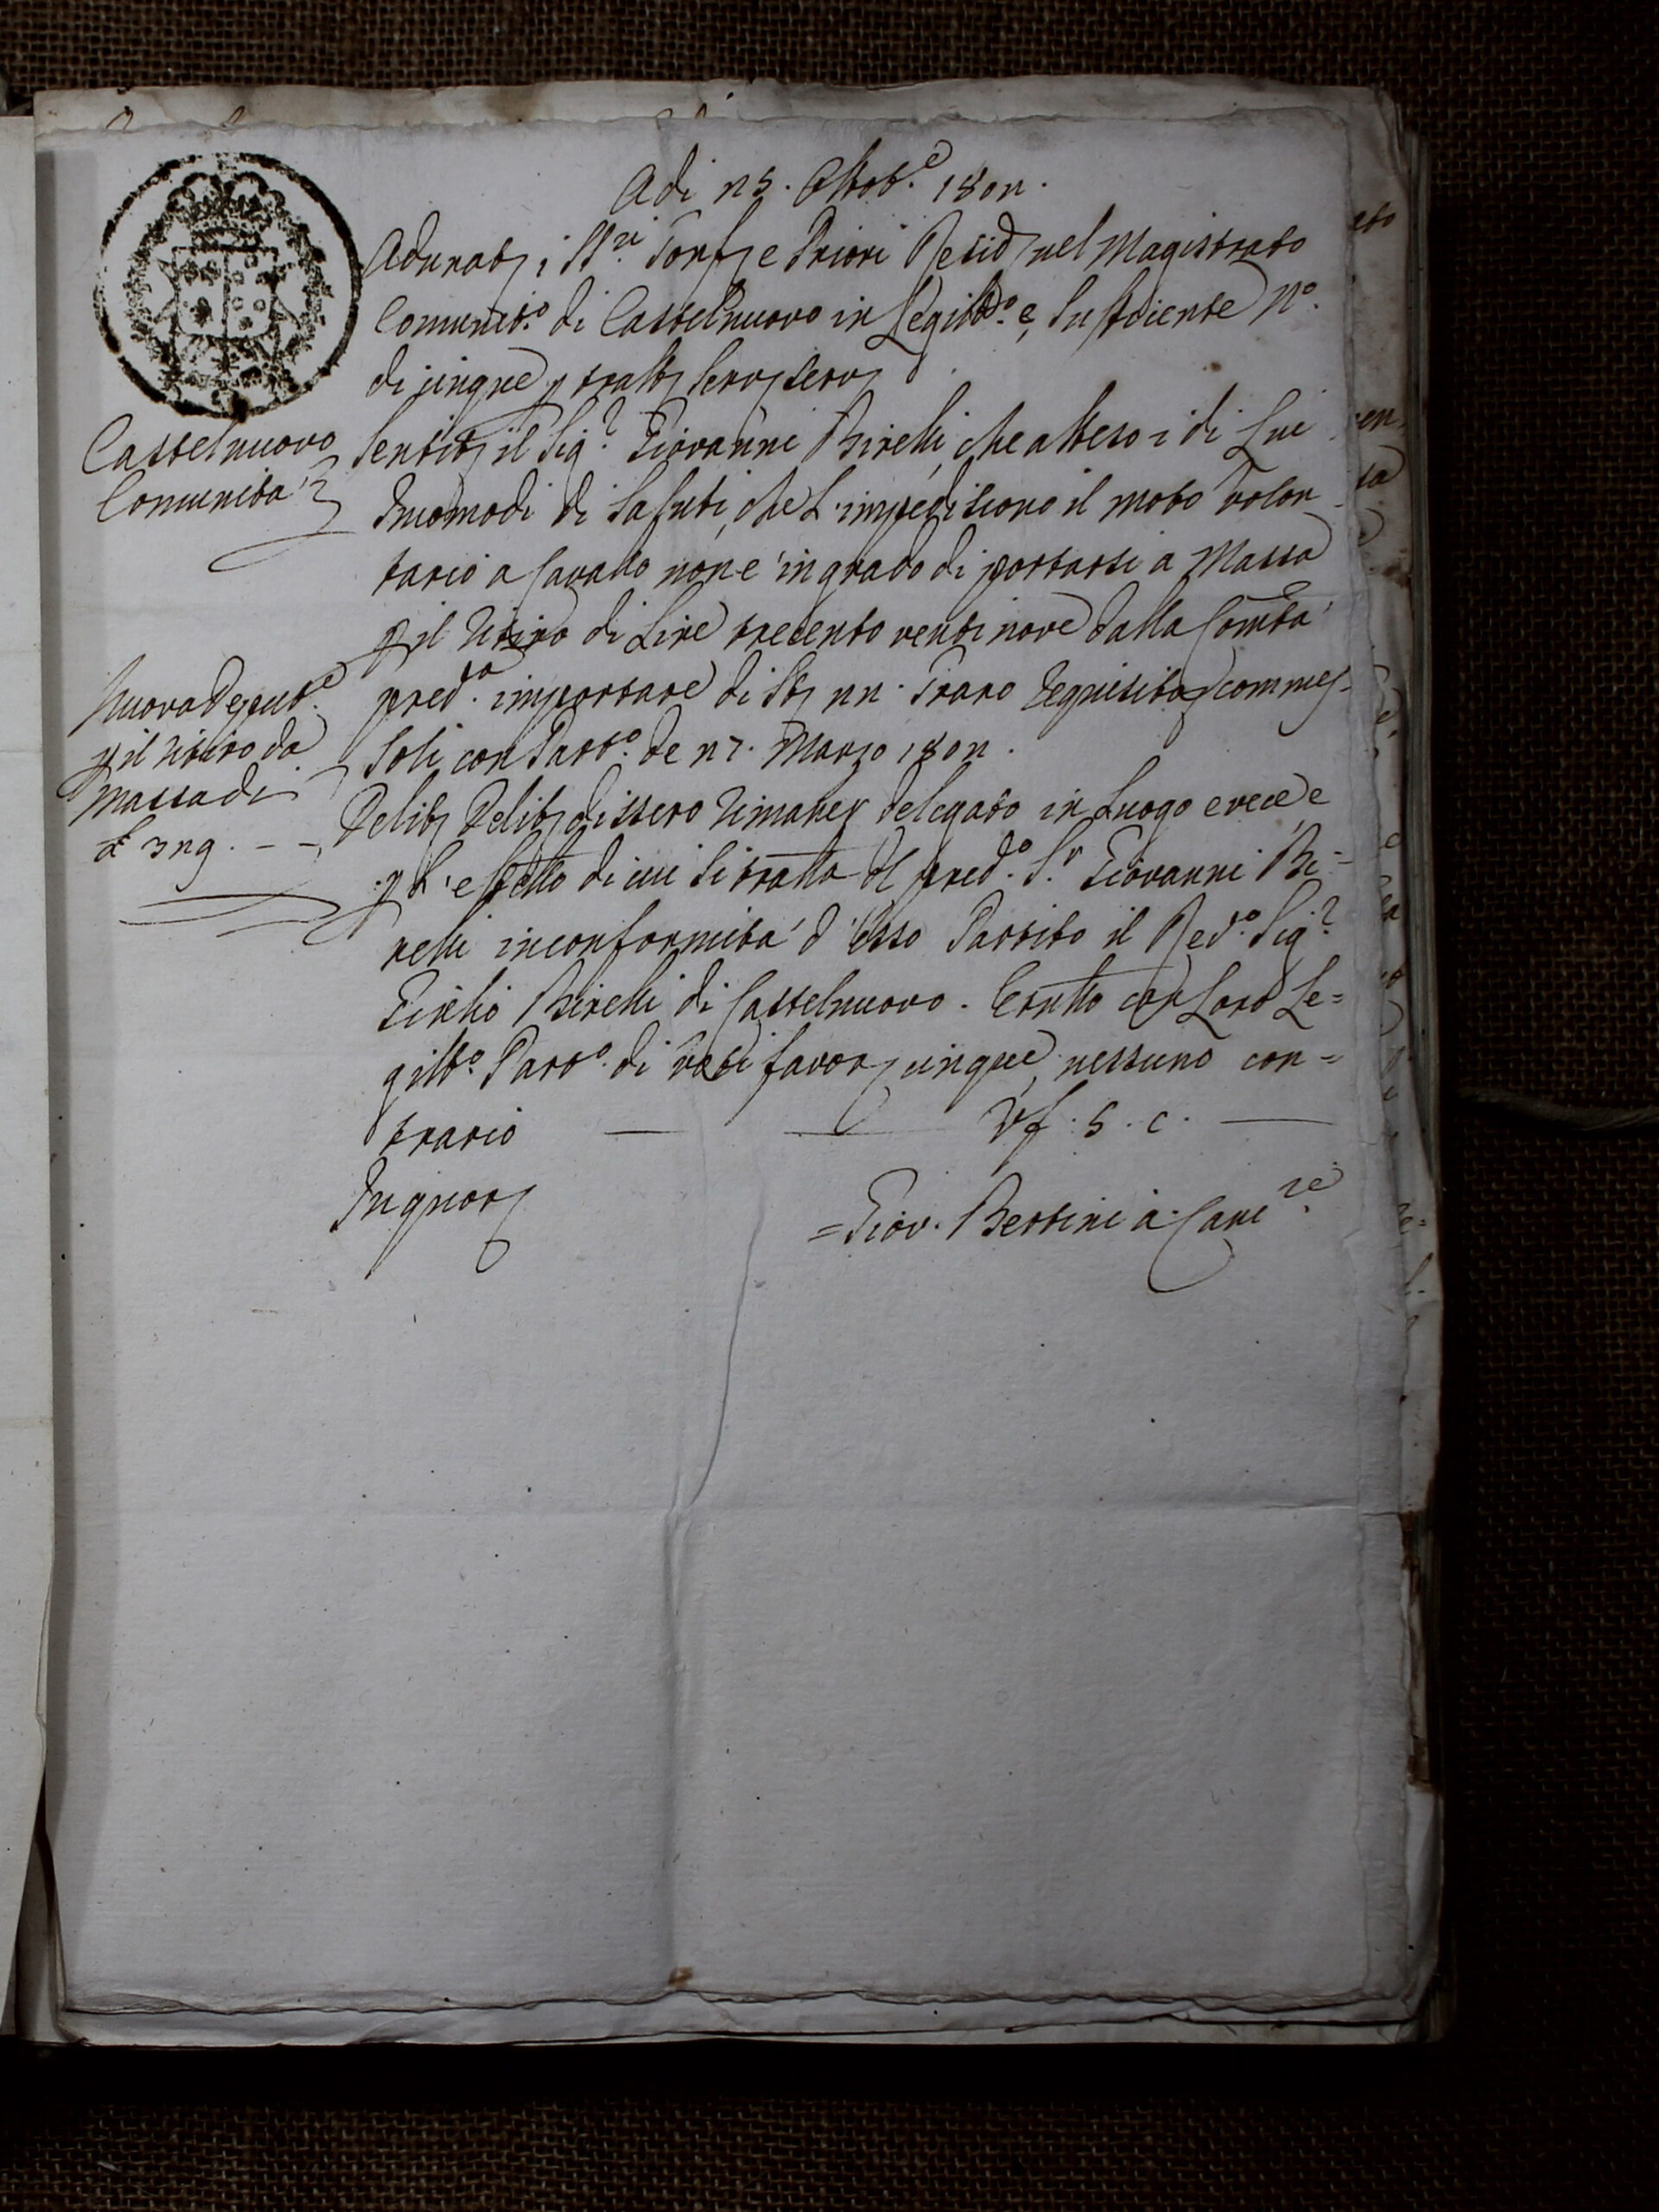 Adi 25. Ottob.e 1802.
Adunatj i SS.ri Gonf.j e Priori Resid.j nel Magistrato
Comunit.o di Castelnuovo in Legitt.o e Sufficiente N.o
di cinque p trattj servj servj
Castelnuovo
Comunità
Sentitj il Sig.r Giovanni Birelli, che atteso i di Lui
Incomodi di Saluti, che L'impediscono il moto volon
tario a Cavallo non è in grado di portarsi a Massa
p il ritiro di Lire trecento venti nove dalla Com̃tà
pred.ta importare di Stj 22. Grano requisito, e commes=
soli con Part.o de 27. Marzo 1802.
Nuova Deput.e
p il ritiro da
Massa di
£ 329. - -
Delibj Delibj dissero rimaner delegato in Luogo e vece, e
p L'effetto di cui si tratta del pred.o S.r Giovanni Bi=
relli in conformità d'Esso Partito il Rev.o Sig.r
Giulio Birelli di Castelnuovo. E tutto con Loro Le=
gitt.o Part.o di voti favorj cinque, nessuno con=
trario — — Vf. 5. c. —
In quorj
= Giov. Bertini a Canc.re